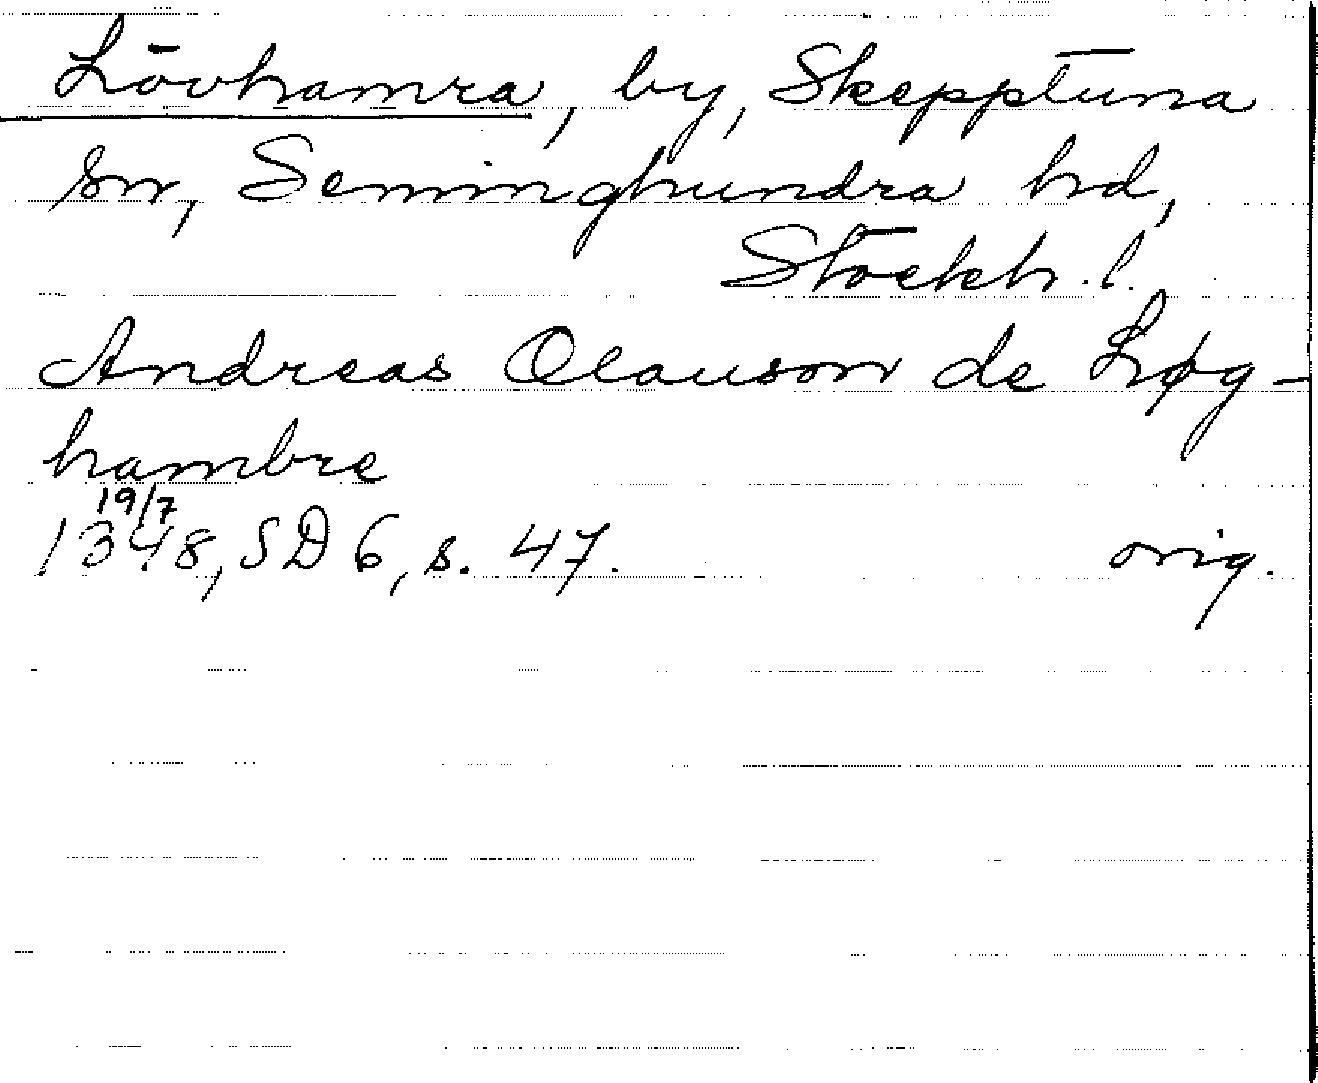 Lövhamra, by, Skepptuna
sn, Seminghundra hd,
Stockh. l.
Andreas Olauson de Løg-
hambre
19/7
1348, SD 6, s. 47. orig.